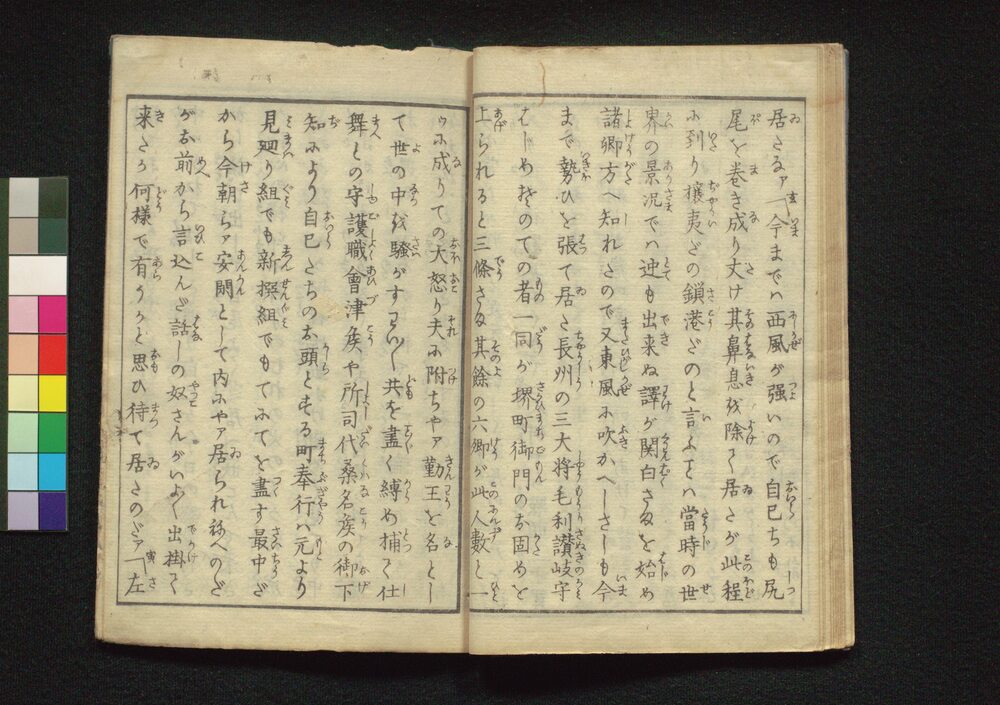 居るさァ「今までハ西風が强いので自已ちも尻
尾を巻き成り丈け其鼻息を除て居たが此程
に到り攘夷だの鎖港だのと言ふてハ當時の世
界の景況でハ迚も出来ぬ譯が関白さまを始め
諸卿方へ知れたので又東風に吹かへしさしも今
まで勢ひを張て居た長州の三大将毛利讃岐守
はじめ そのての者一同が堺町御門のお固めを
上られると三條さま其餘の六卿が此人數と一
ツに成りての大怒り夫に附ちやァ勤王を名とし
て世の中を騒がす わるい共を盡く縛め捕て仕
舞との守護職會津矦や所司代桑名矦の御下
知により自已たちのお頭とする町奉行ハ元より
見廻り組でも新撰組でもてにてを盡す最中だ
から今朝らァ安閑として内にやァ居られねへのだ
がお前から言込んだ話しの奴さんがいよ〳〵出掛て
来たか何様で有うかと思ひ待て居たのだァ「左